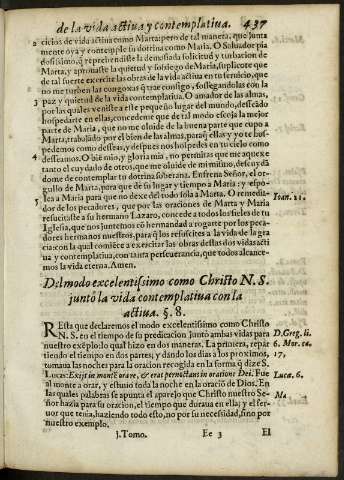 de la vida actiua y contemplatiua. 437
2 cicios de vida actiua como Marta: pero de tal manera, que junta
mente oya y contemple su doctrina como Maria. O Saluador pia
dosissimo, q̃ reprehendiste la demasiada solicitud y turbacion de
Marta, y aprouaste la quietud y sosiego de Maria, suplicote que
de tal suerte exercite las obras de la vida actiua en tu seruicio, que
no me turben las congoxas q̃ trae consigo, sossegandolas con la
3 paz y quietud de la vida contemplatiua. O amador de las almas,
por las quales veniste a este pequeño lugar del mundo, desseãdo
hospedarte en ellas, concedeme que de tal modo escoja la mejor
parte de Maria, que no me oluide de la buena parte que cupo a
Marta, trabajãdo por el bien de las almas, paraq̃ ellas y yo te hos-
pedemos como desseas, y despues nos hospedes en tu cielo como
4 desseamos. O biẽ mio, y gloria mia, no permitas que me aquexe
tanto el cuydado de otros, que me oluide de mi mismo, descuydã
dome de contemplar tu dotrina soberana. Enfrena Señor, el or-
gullo de Marta, para que dè su lugar y tiempo a Maria: y espo-
lea a Maria para que no dexe del todo sola a Marta. O remedia-
5 dor de los pecadores, que por las oraciones de Marta y Maria
resucitaste a su hermano Lazaro, concede a todos los fieles de tu
Iglesia, que nos juntemos cõ hermandad a rogarte por los peca-
dores hermanos nuestros, para q̃ los resuscites a la vida de la gra
cia con la qual comiẽce a exercitar las obras destas dos vidas acti
ua y contemplatiua, con tanta perseuerancia, que todos alcance-
mos la vida eterna. Amen.
Ioan. 11.
Del modo excelentissimo como Christo N. S.
juntò la vida contemplatiua con la
actiua. §. 8.
REsta que declaremos el modo excelentissimo como Christo
N. S. en el tiempo de su predicacion juntò ambas vidas para
nuestro exẽplo: lo qual hizo en dos maneras. La primera, repar
tiendo el tiempo en dos partes; y dando los dias a los proximos,
tomaua las noches para la oracion recogida en la forma q̃ dize S.
Lucas: Exijt in montẽ orare, & erat pernoctans in oratione Dei. Fue
al monte a orar, y estuuo toda la noche en la oraciõ de Dios. En
las quales palabras se apunta el aparejo que Christo nuestro Se-
ñor hazia para su oracion, el tiempo que duraua en ella; y el fer-
uor que tenia, haziendo todo esto, no por su necessidad, sino por
nuestro exemplo.
D. Greg. li.
6. Mor. ca.
17,
Lucæ. 6.
1. Tomo. Ee 3 El